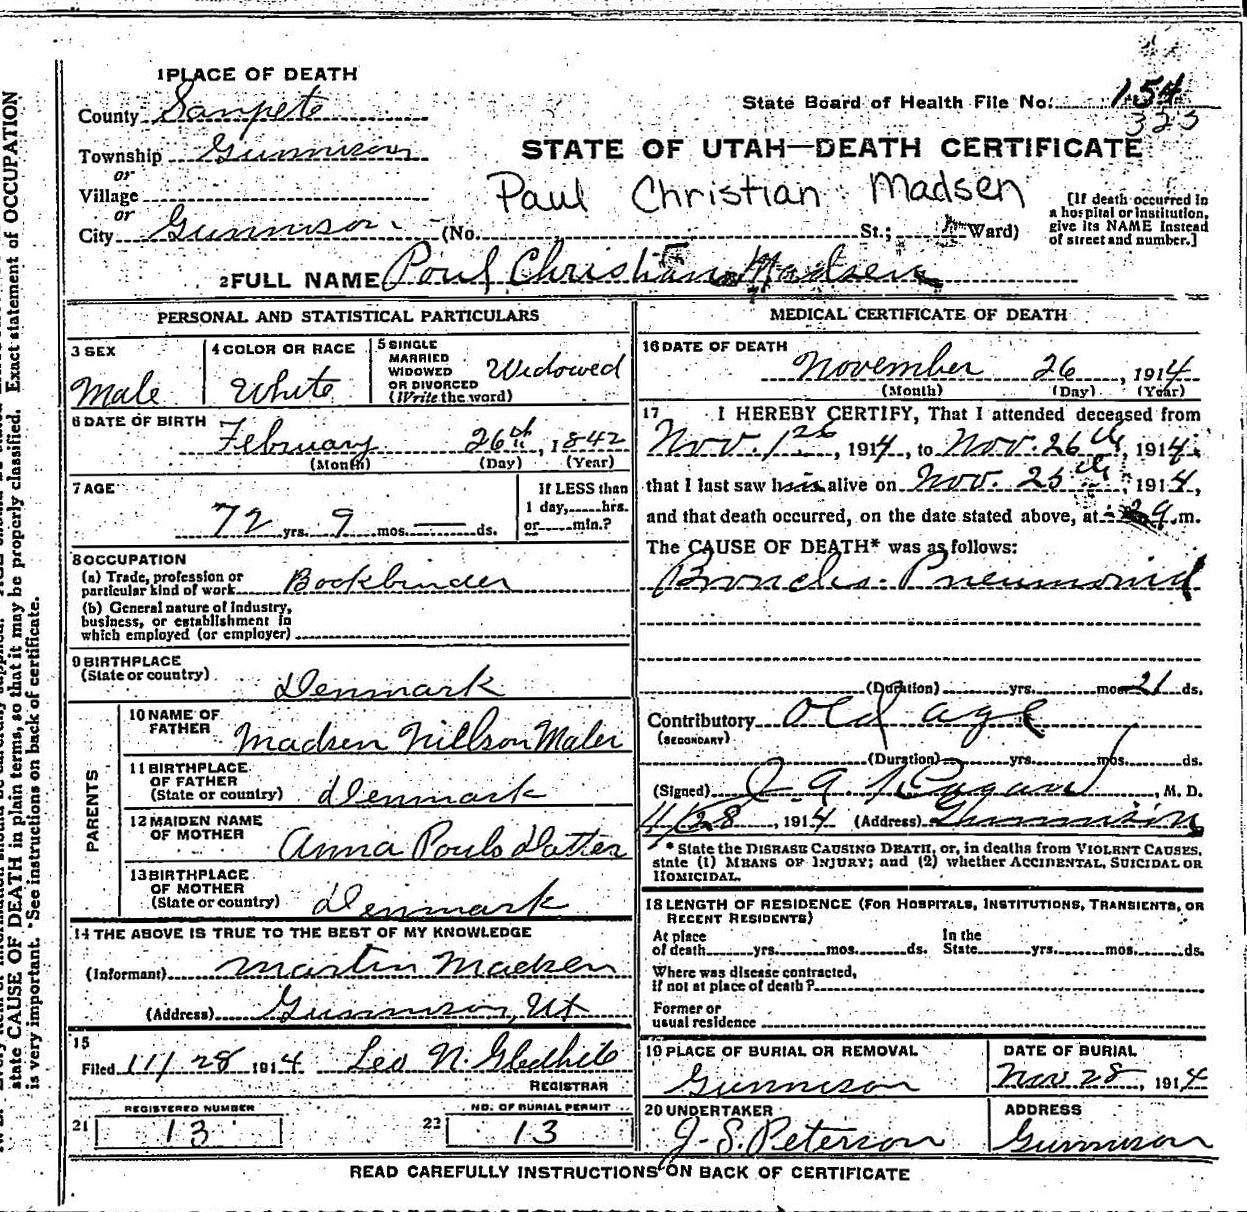 1 PLACE OF DEATH
County Sanpete
Township Gunnison
or
Village
or
City Gunnison (No. St.; Ward)
State Board of Health File No. 154
323
STATE OF UTAH—DEATH CERTIFICATE
Paul Christian Madsen
[If death occurred in
a hospital or institution,
give its NAME instead
of street and number.]
2 FULL NAME Poul Christian Madsen
PERSONAL AND STATISTICAL PARTICULARS
3 SEX
Male
4 COLOR OR RACE
White
5 SINGLE
MARRIED
WIDOWED
OR DIVORCED
(Write the word)
Widowed
6 DATE OF BIRTH
February 26th, 1842
(Month) (Day) (Year)
7 AGE
72 yrs. 9 mos. — ds.
If LESS than
1 day, hrs.
or min.?
8 OCCUPATION
(a) Trade, profession or
particular kind of work Bookbinder
(b) General nature of industry,
business, or establishment in
which employed (or employer)
9 BIRTHPLACE
(State or country)
Denmark
PARENTS
10 NAME OF
FATHER
Madsen Nillson Maler
11 BIRTHPLACE
OF FATHER
(State or country) Denmark
12 MAIDEN NAME
OF MOTHER
Anna Pouls Datter
13 BIRTHPLACE
OF MOTHER
(State or country) Denmark
14 THE ABOVE IS TRUE TO THE BEST OF MY KNOWLEDGE
(Informant) Martin Madsen
(Address) Gunnison, Ut
15
Filed 11/28 1914 Leo N. Gledhill
REGISTRAR
REGISTERED NUMBER
21 13
NO. OF BURIAL PERMIT
22 13
MEDICAL CERTIFICATE OF DEATH
16 DATE OF DEATH
November 26, 1914
(Month) (Day) (Year)
17 I HEREBY CERTIFY, That I attended deceased from
Nov. 1st, 1914, to Nov. 26th, 1914,
that I last saw him alive on Nov. 25th, 1914,
and that death occurred, on the date stated above, at 9 m.
The CAUSE OF DEATH* was as follows:
Broncho-Pneumonia
(Duration) yrs. mos. 21 ds.
Contributory old age
(SECONDARY)
(Duration) yrs. mos. ds.
(Signed) , M. D.
11/28, 1914 (Address) Gunnison
* State the DISEASE CAUSING DEATH, or, in deaths from VIOLENT CAUSES,
state (1) MEANS OF INJURY; and (2) whether ACCIDENTAL, SUICIDAL OR
HOMICIDAL.
18 LENGTH OF RESIDENCE (FOR HOSPITALS, INSTITUTIONS, TRANSIENTS, OR
RECENT RESIDENTS)
At place
of death yrs. mos. ds.
In the
State yrs. mos. ds.
Where was disease contracted,
if not at place of death?
Former or
usual residence
19 PLACE OF BURIAL OR REMOVAL
Gunnison
DATE OF BURIAL
Nov 28, 1914
20 UNDERTAKER
J. S. Peterson
ADDRESS
Gunnison
READ CAREFULLY INSTRUCTIONS ON BACK OF CERTIFICATE
state CAUSE OF DEATH in plain terms, so that it may be properly classified. Exact statement of OCCUPATION
is very important. *See instructions on back of certificate.